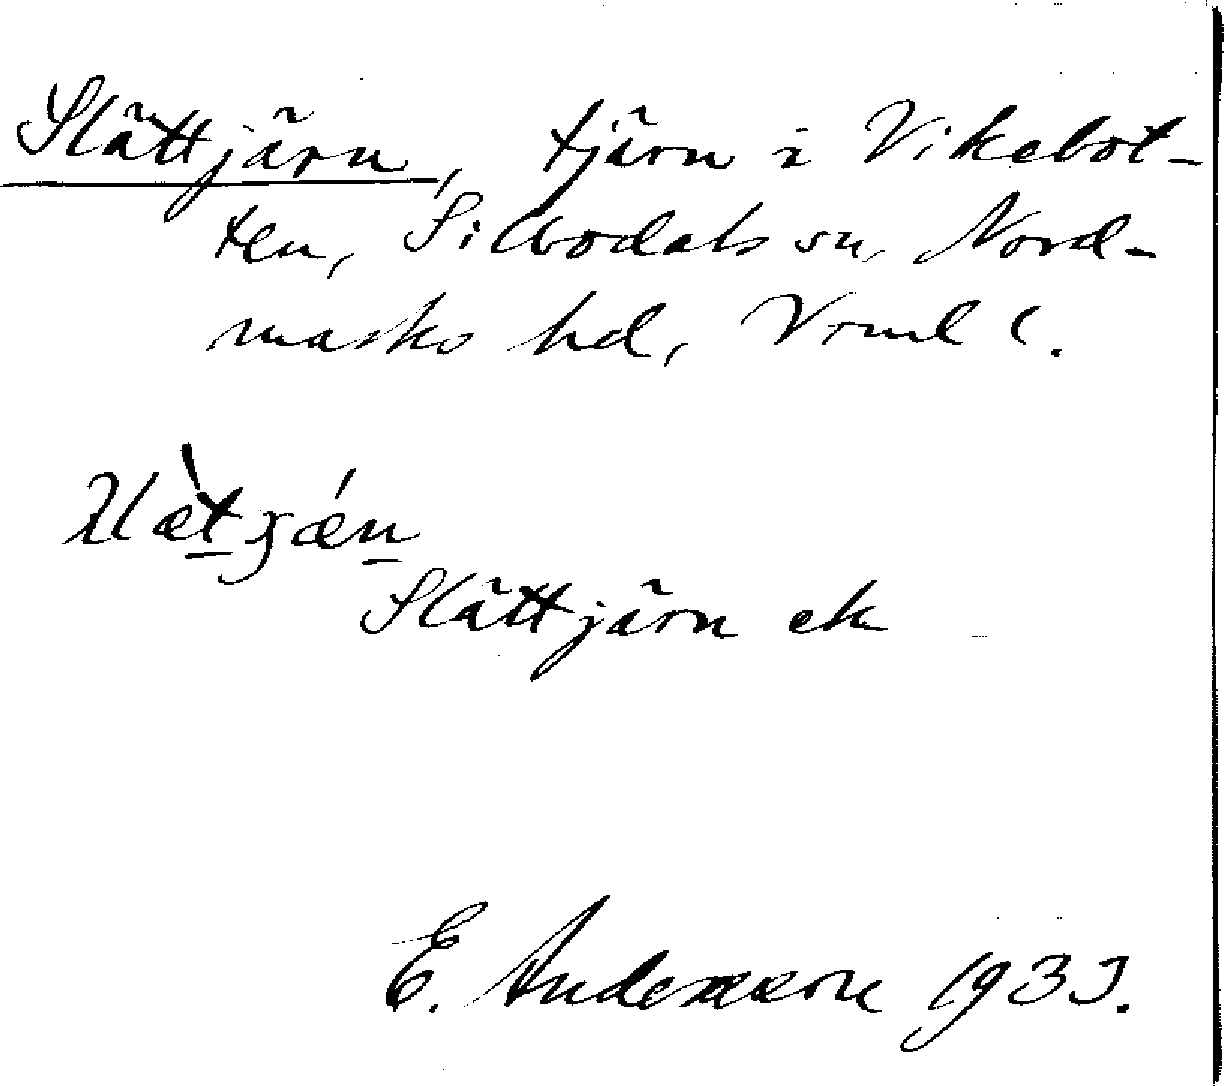 Slättjärn, tjärn i Vikebot-
ten, Silbodals sn, Nord-
marks hd, Vrml (.
Slättjärn ek
E. Andersson 1933.